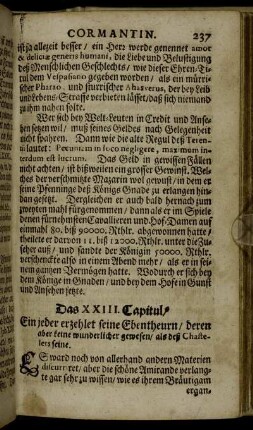 CORMANTIN. 237
ist ja allezeit besser / ein Herz werde genennet amor
& deliciæ generis humani, die Liebe und Belustigung
deß Menschlichen Geschlechts / wie dieser Ehren-Ti-
tul dem Vespasiano gegeben worden / als ein mürri-
scher Pharao, und störrischer Ahasverus, der bey Leib
und Lebens-Straffe verbieten lässet / daß sich niemand
zu ihm nahen solte.
Wer sich bey Welt-Leuten in Credit und Anse-
hen setzen wil / muß seines Geldes nach Gelegenheit
nicht spahren. Dann wie die alte Regul deß Teren-
ii lautet: Pecuniam in loco negligere, maximum in-
terdum est lucrum. Das Geld in gewissen Fällen
nicht achten / ist bißweilen ein grosser Gewinst. Wel-
ches der verschmitzte Mazarin wol gewust / in dem er
seine Pfennings deß Königs Gnade zu erlangen hin-
dan gesetzt. Dergleichen er auch bald hernach zum
zweyten mahl fürgenommen / dann als er im Spiele
denen fürnehmsten Cavallieren und Hof-Damen auf
einmahl 80. biß 90000. Rthlr. abgewonnen hatte /
theilete er darvon 11. biß 12000. Rthlr. unter die Zu-
seher auß / und sandte der Königin 70000. Rthlr.
verschenckte also in einem Abend mehr / als er in sei-
nem gantzen Vermögen hatte. Wodurch er sich bey
dem Könige in Gnaden / und bey dem Hofe in Gunst
und Ansehen setzte.
Das XXIII. Capitul /
Ein jeder erzehlet seine Ebentheurn / deren
aber keine wunderlicher gewesen / als deß Chaste-
lers seine.
ES ward noch von allerhand andern Materien
discurriret / aber die schöne Amirande verlang-
te gar sehr zu wissen / wie es ihrem Bräutigam
ergan-